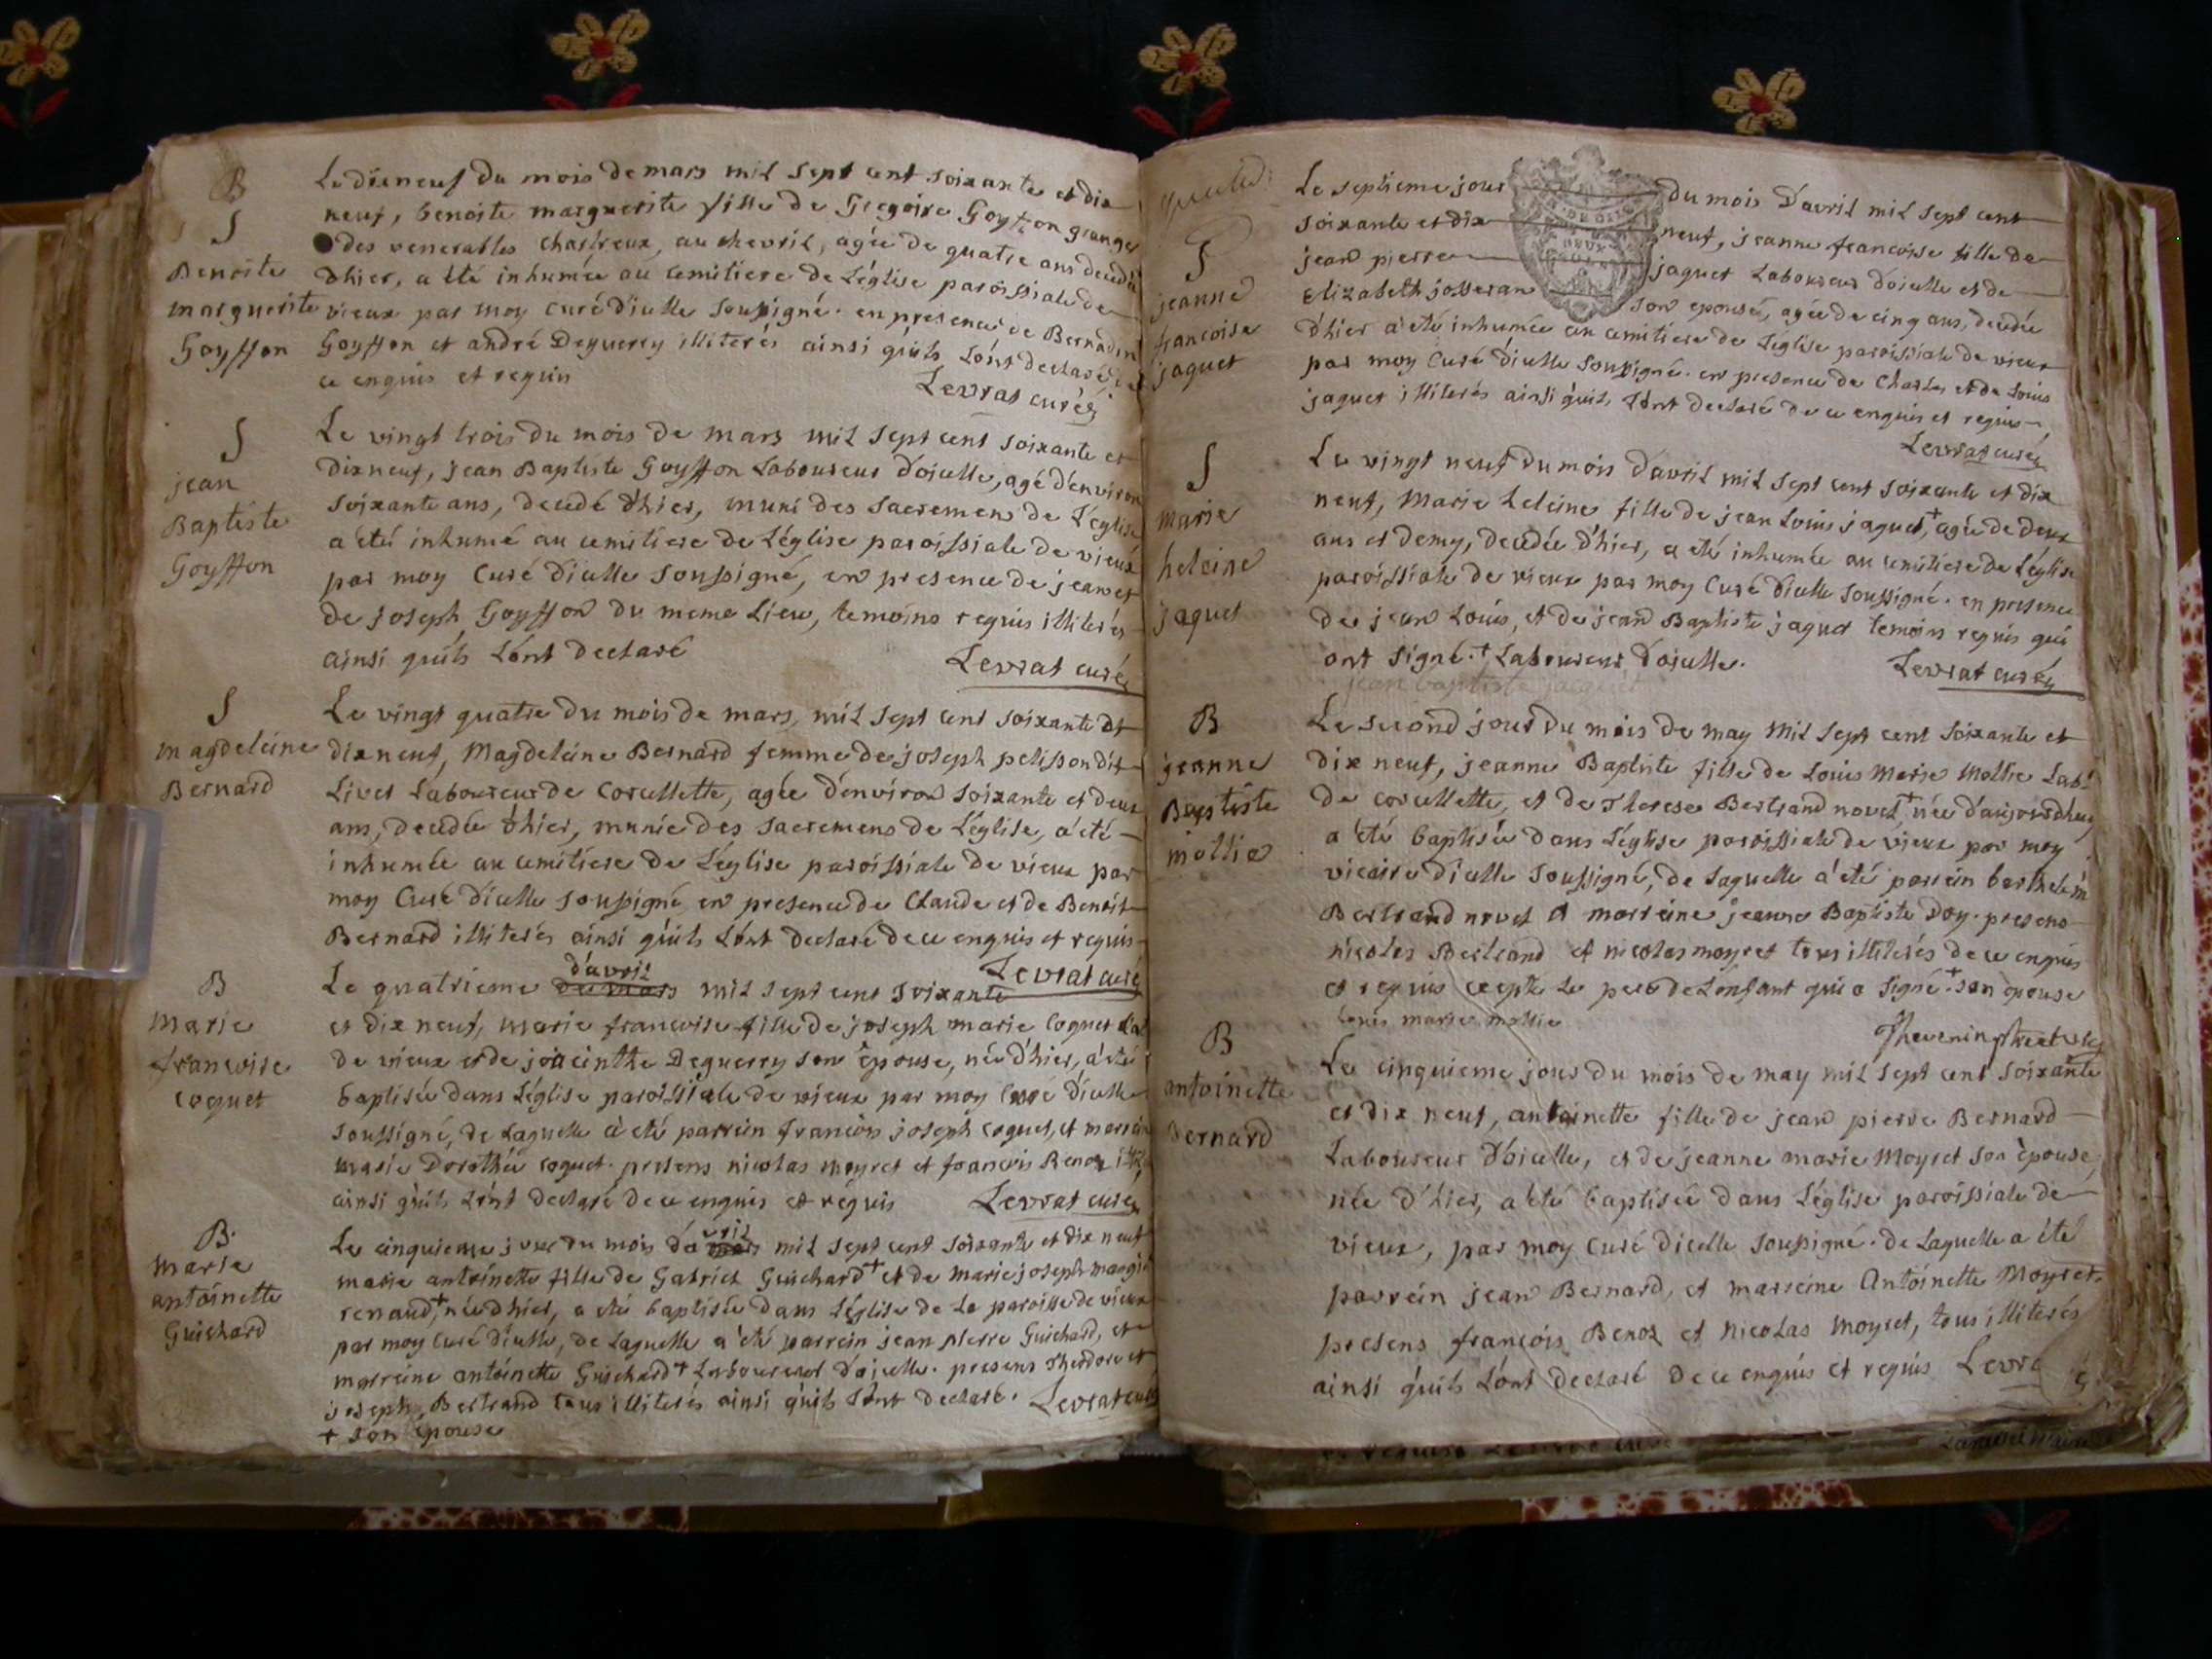 B
S
Benoite
marguerite
Goyffon
Le dixneuf du mois de mars mil sept cent soixante et dix
neuf, benoite marguerite fille de Gregoire Goyffon granger
des venerables chartreux, au chevril, agée de quatre ans decedée
d'hier, a été inhumée au cemitiere de L'église paroissiale de
vieux par moy curé d'icelle soussigné. en presence de Bernadin
Goyffon et andré Deguerry illiterés ainsi qu'ils L'ont declaré de
ce enquis et requis
Levrat curé
S
jean
Baptiste
Goyffon
Le vingt trois du mois de mars mil sept cent soixante et
dix neuf, jean Baptiste Goyffon Laboureur d'oicelle, agé d'environ
soixante ans, decedé d'hier, muni des sacremens de L'eglise
a été inhumé au cemitiere de L'église paroissiale de vieux
par moy Curé d'icelle soussigné, en presence de jean et
de joseph Goyffon du meme Lieu, temoins requis illiterés
ainsi qu'ils L'ont declaré
Levrat curé
S
magdeleine
Bernard
Le vingt quatre du mois de mars, mil sept cent soixante et
dix neuf, Magdeleine Bernard femme de joseph pelisson dit
Livet Laboureur de Corcellette, agée d'environ soixante et deux
ans, decedée d'hier, munie des sacremens de L'église, a été
inhumée au cemitiere de L'église paroissiale de vieux par
moy Curé d'icelle soussigné, en presence de Claude et de Benoit
Bernard illiterés ainsi qu'ils L'ont declaré de ce enquis et requis
Levrat curé
B
Marie
francoise
coquet
Le quatrieme d'avril du mars mil sept cent soixante
et dix neuf, marie francoise fille de joseph marie Coquet Lab
de vieux et de joacinthe Deguerry son epouse, née d'hier, a été
baptisée dans L'église paroissiale de vieux par moy Curé d'icelle
soussigné, de Laquelle a été parrein francois joseph coquet, et marreine
marie Dorothée coquet. presens nicolas moyret et francois Benoz illit.
ainsi qu'ils L'ont declaré de ce enquis et requis
Levrat curé
B.
Marie
antoinette
Guichard
Le cinquieme jour du mois d'avril mil sept cent soixante et dix neuf
marie antoinette fille de Gabriel Guichard + et de marie joseph mangin
renaud + née d'hier, a été baptisée dans L'église de La paroisse de vieux
par moy curé d'icelle, de Laquelle a été parrein jean pierre Guichard, et
marreine antoinette Guichard + Laboureur d'oicelle. presens Theodore et
joseph Bertrand tous illiterés ainsi qu'ils L'ont declaré. Levrat curé
+ son epouse
S
jeanne
francoise
jaquet
Le septieme jour du mois d'avril mil sept cent
soixante et dix neuf, jeanne francoise fille de
jean pierre jaquet Laboureur d'oicelle et de
Elizabeth josseran son epouse, agée de cinq ans, decedée
d'hier a été inhumée au cemitiere de L'eglise paroissiale de vieux
par moy Curé d'icelle soussigné. en presence de Charles et de Louis
jaquet illiterés ainsi qu'ils L'ont declaré de ce enquis et requis
Levrat curé
S
Marie
heleine
jaquet
Le vingt neuf du mois d'avril mil sept cent soixante et dix
neuf, Marie heleine fille de jean Louis jaquet, + agée de deux
ans et demy, decedée d'hier, a été inhumée au cemitiere de L'église
paroissiale de vieux par moy Curé d'icelle soussigné. en presence
de jean Louis, et de jean Baptiste jaquet temoins requis qui
ont signé. + Laboureur d'oicelle.
Levrat curé
jean baptiste jacquet
B
jeanne
Baptiste
mollie
Le second jour du mois de may mil sept cent soixante et
dix neuf, jeanne Baptiste fille de Louis Marie Mollie Lab.
de corcellette, et de Therese Bertrand novet + née d'aujourdhuy
a été baptisée dans L'église paroissiale de vieux par moy
vicaire d'icelle soussigné, de Laquelle a été parrein barthelem
Bertrand novet et marreine jeanne Baptiste Doy. presens
nicolas Bertrand et nicolas moyret tous illiterés de ce enquis
et requis excepté Le pere de L'enfant qui a signé. + son epouse
louis marie mollie
Thevenin
B
antoinette
Bernard
Le cinquieme jour du mois de may mil sept cent soixante
et dix neuf, antoinette fille de jean pierre Bernard
Laboureur d'oicelle, et de jeanne marie Moyret son épouse,
née d'hier, a été baptisée dans L'église paroissiale de
vieux, par moy Curé d'icelle soussigné. de Laquelle a été
parrein jean Bernard, et marreine Antoinette Moyret.
presens françois Benoz et Nicolas Moyret, tous illiterés
ainsi qu'ils L'ont declaré de ce enquis et requis Levra